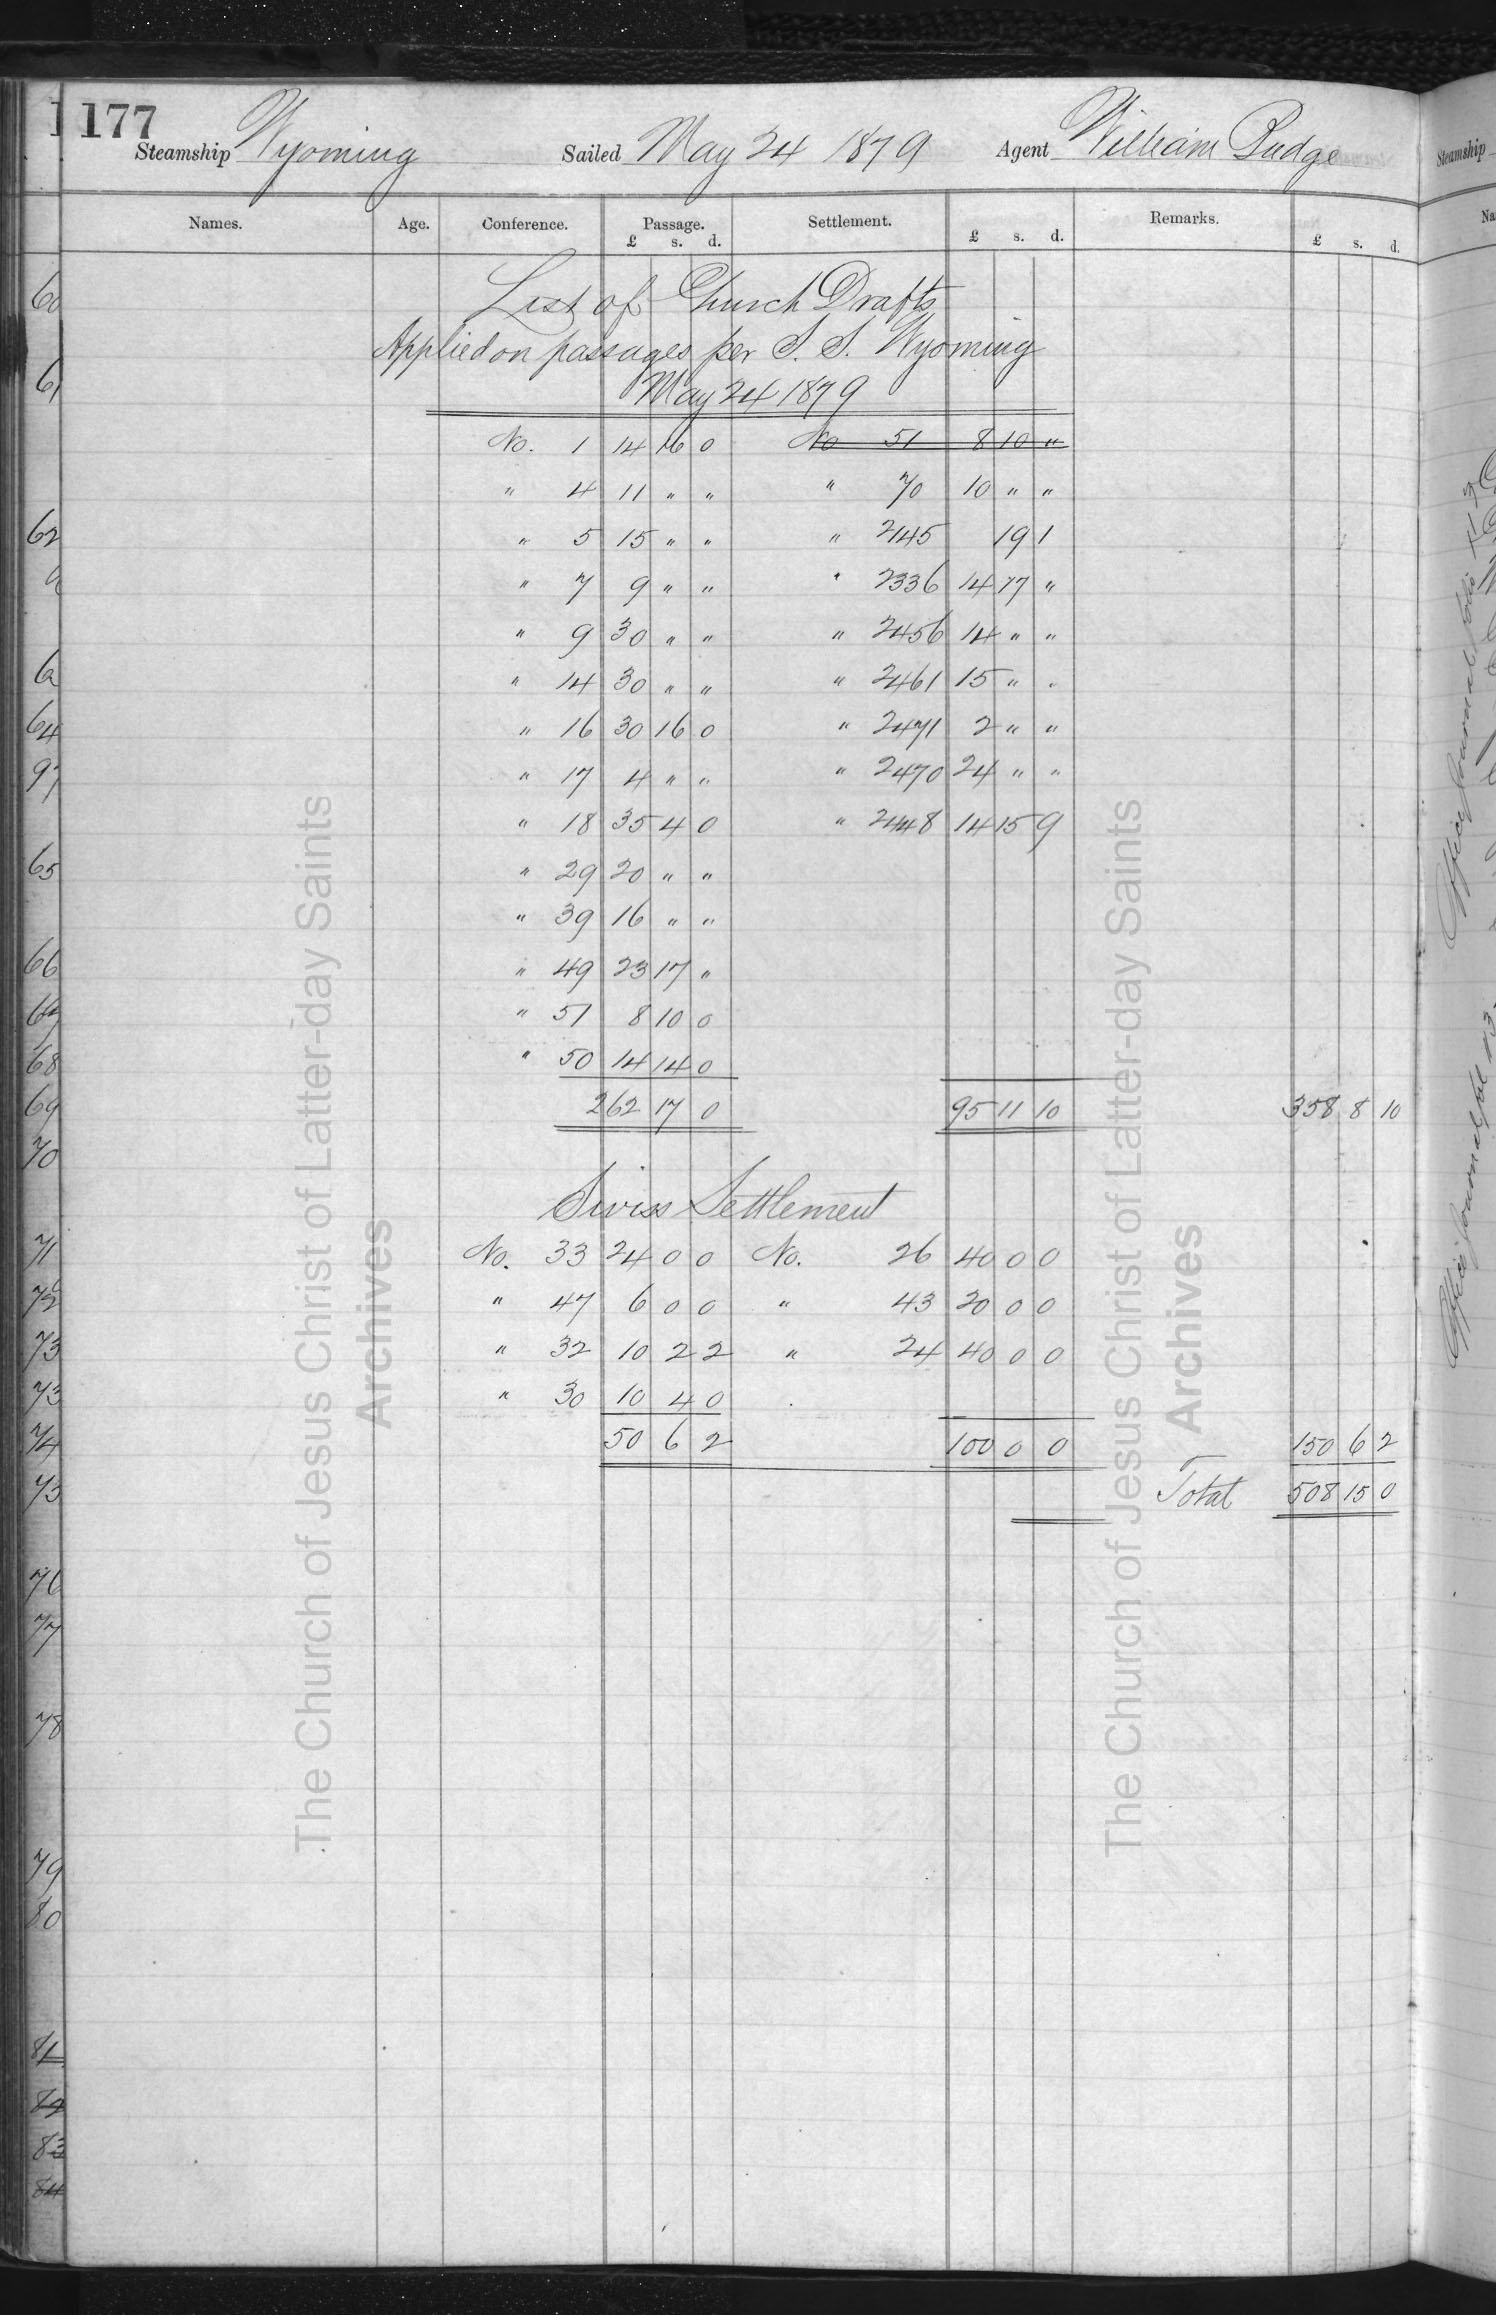 177
Steamship Wyoming Sailed May 24 1879 Agent William Budge
Names. Age. Conference. Passage. Settlement. Remarks.
£ s. d. £ s. d. £ s. d.
List of Church Drafts
Applied on passages per S. S. Wyoming
May 24 1879
No. 1 14 16 0 No 51 8 10 "
" 4 11 " " " 70 10 " "
" 5 15 " " " 2145 19 1
" 7 9 " " " 2336 14 17 "
" 9 30 " " " 2456 14 " "
" 14 30 " " " 2461 15 " "
" 16 30 16 0 " 2471 2 " "
" 17 4 " " " 2470 24 " "
" 18 35 4 0 " 2448 14 15 9
" 29 20 " "
" 39 16 " "
" 49 23 17 "
" 51 8 10 0
" 50 14 14 0
262 17 0 95 11 10 358 8 10
Swiss Settlement
No. 33 24 0 0 No. 26 40 0 0
" 47 6 0 0 " 43 20 0 0
" 32 10 2 2 " 24 40 0 0
" 30 10 4 0
50 6 2 100 0 0 150 6 2
Total 508 15 0
60
61
62
62
64
97
65
66
67
68
69
70
71
72
73
73
74
73
76
77
78
79
80
81
82
83
84
The Church of Jesus Christ of Latter-day Saints
Archives
The Church of Jesus Christ of Latter-day Saints
Archives
Steamship
Office Journal
Office Journal